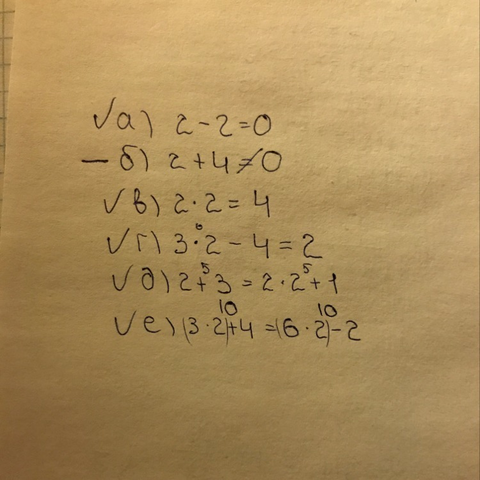 √а) 2-2=0
– б) 2+4≠0
√в) 2·2=4
6
√г) 3·2-4=2
5 5
√д) 2+3=2·2+1
10 10
√е) (3·2)+4=(6·2)-2